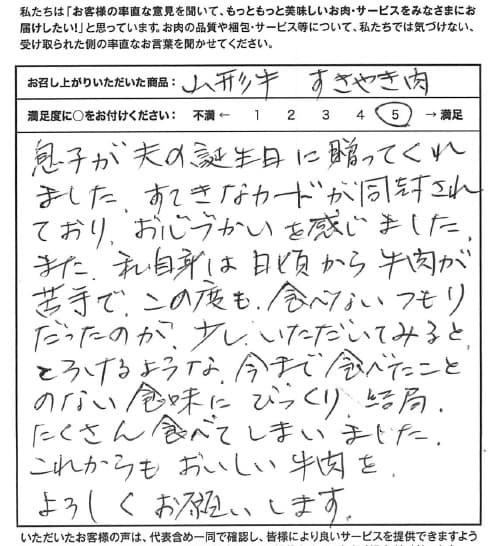 私たちは「お客様の率直な意見を聞いて、もっともっと美味しいお肉・サービスをみなさまにお
届けしたい!」と思っています。お肉の品質や梱包・サービス等について、私たちでは気づけない、
受け取られた側の率直なお言葉を聞かせてください。
お召し上がりいただいた商品: 山形牛 すきやき肉
満足度に○をお付けください: 不満 ← 1 2 3 4 5 → 満足
息子が夫の誕生日に贈ってくれ
ました。すてきなカードが同封され
ており、お心づかいを感じました。
また、私自身は日頃から牛肉が
苦手で、この度も、食べないつもり
だったのが、少しいただいてみると、
とろけるような、今まで食べたこと
のない食味にびっくり、結局、
たくさん食べてしまいました。
これからもおいしい牛肉を、
よろしくお願いします。
いただいたお客様の声は、代表含め一同で確認し、皆様により良いサービスを提供できますよう